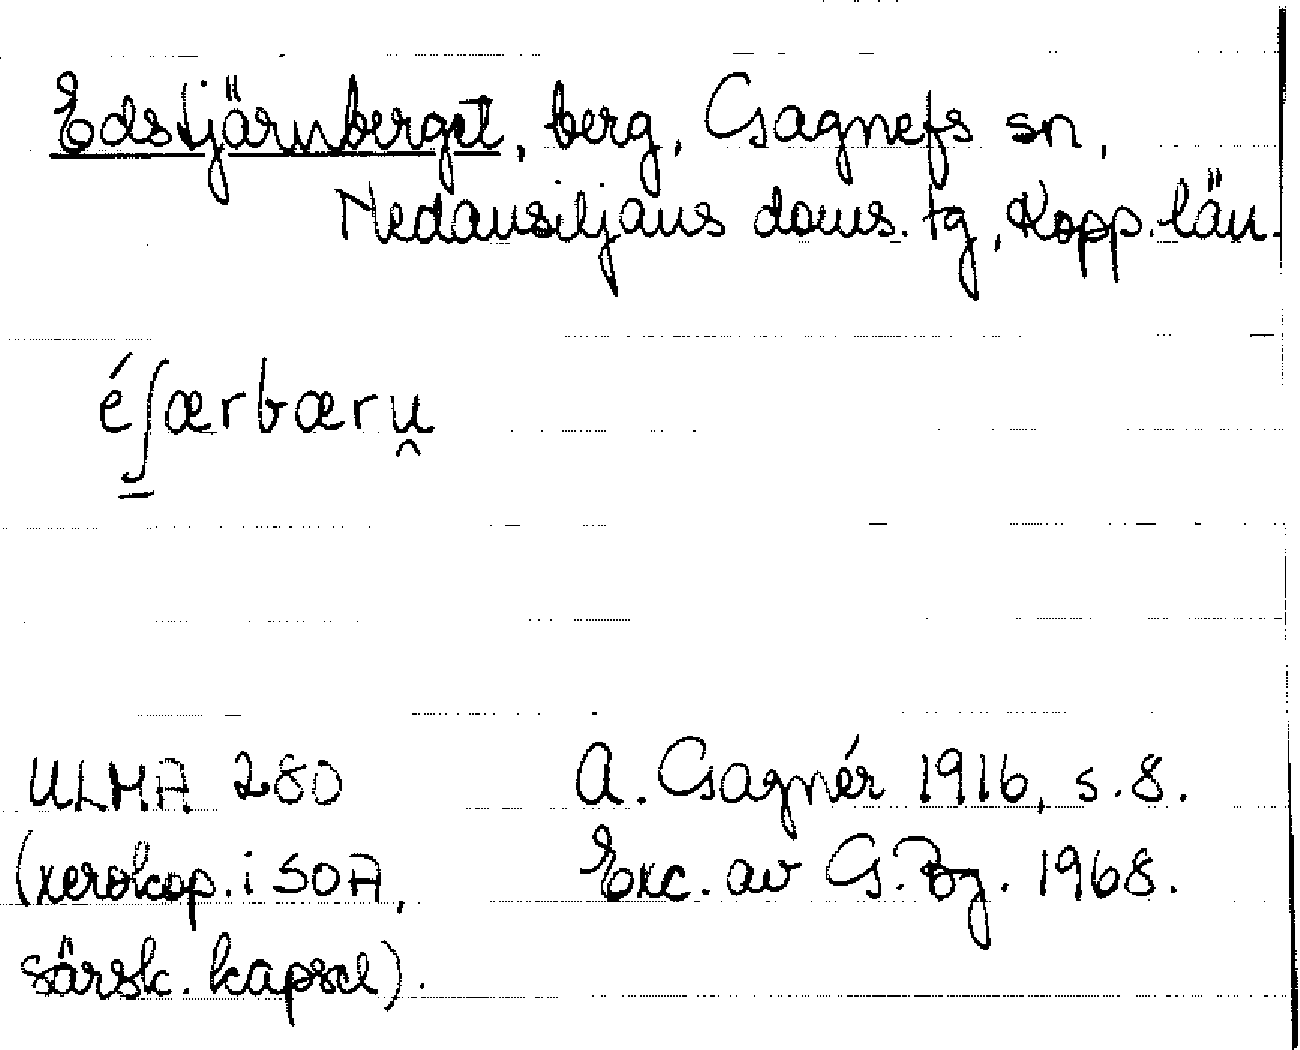 Edstjärnberget, berg, Gagnefs sn,
Nedansiljans doms. tg, Kopp. län.
éʃærbæru̯
ULMA 280
(xerokop. i SOA,
särsk. kapsel).
A. Gagnér 1916, s. 8.
Exc. av G. Bg. 1968.